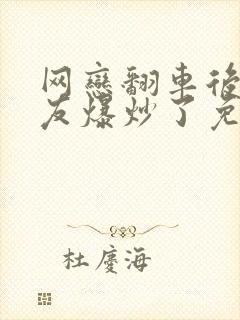 网戀翻車後
友爆炒了免
杜慶海